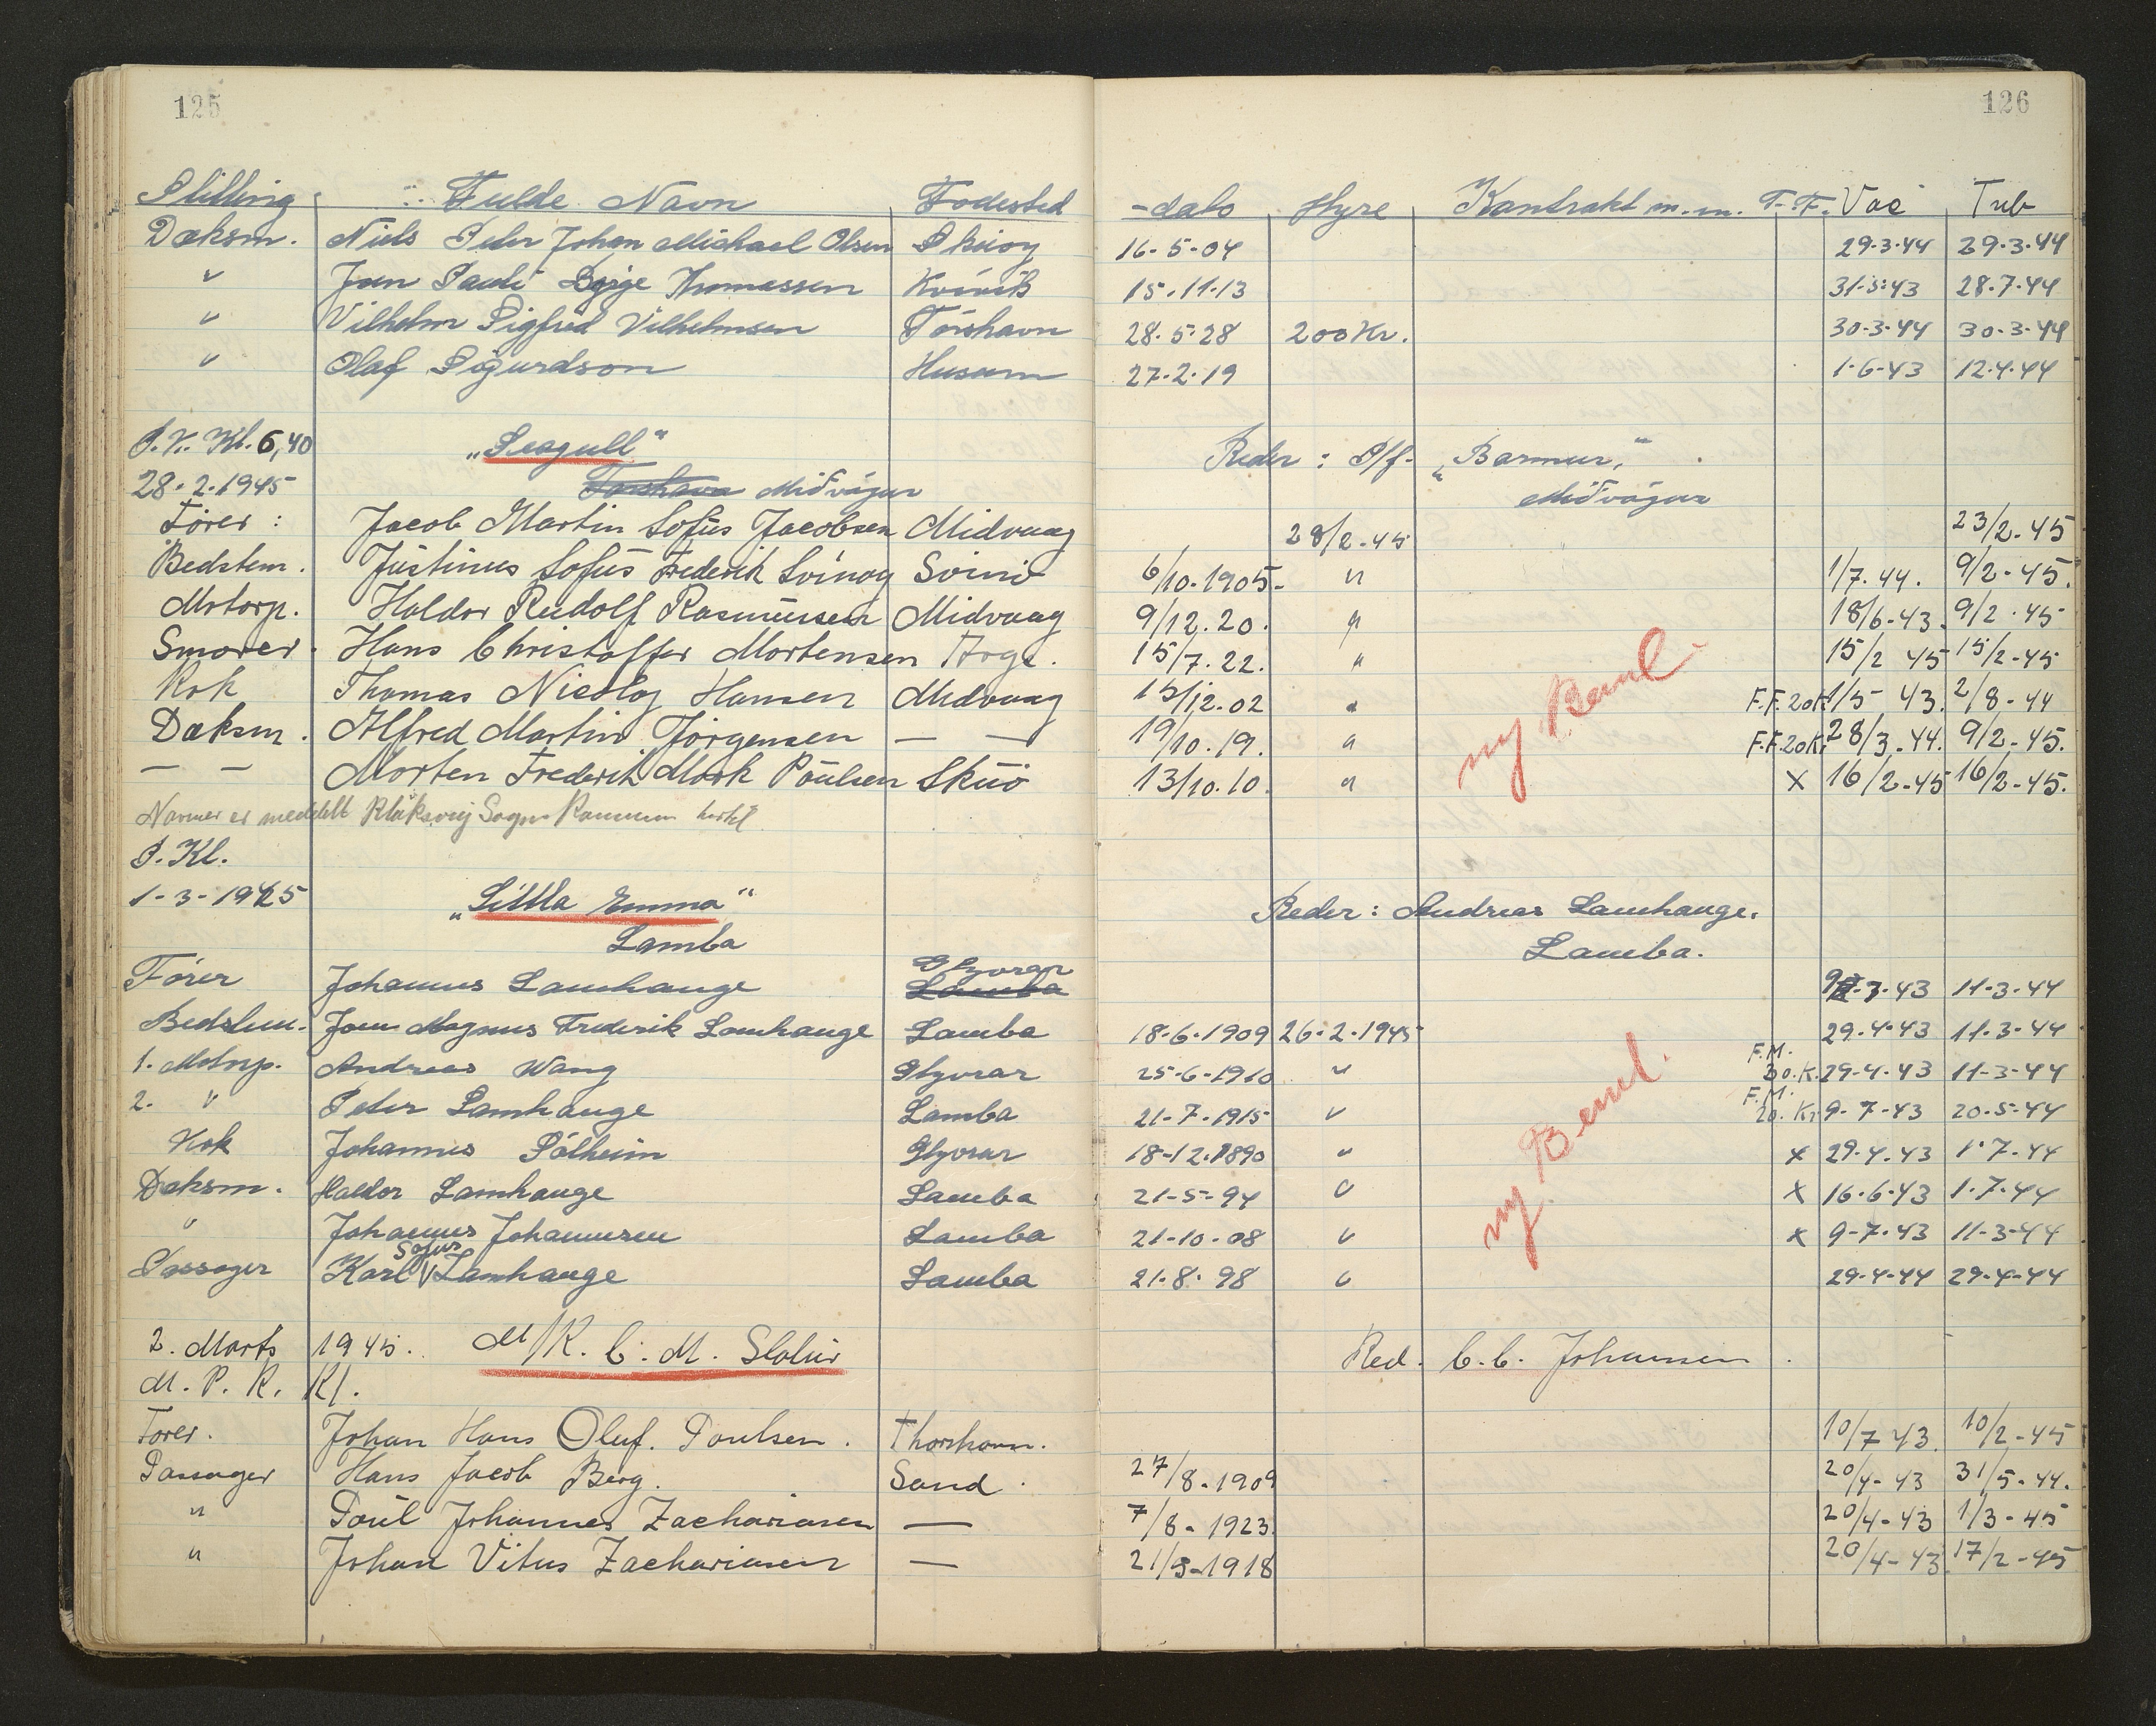 125 126
Stilling Fulde Navn Fødested -dato Hyre Kontrakt m.m. T.F. Vac Tub
Dæksm. Niels Peter Johan Michael Olsen Skúoy 16-5-04 29-3-44 29-3-44
" Joen Pauli Thomassen Kvívík 15.11.13 31-5-43 28.7.44
" Vilhelm Sigfred Vilhelmsen Tórshavn 28.5.28 200 Kr. 30-3-44 30-3-44
" Olaf Sigurdson Husum 27.2.19 1-6-43 12.4.44
P.K. Kl. 6,40 „Seagull“ Reder: P/f. „Barmur,“
28.2.1945 Tórshavn Miðvágur Miðvágur
Fører: Jacob Martin Sofus Jacobsen Midvaag 28/2-45 23/2-45
Bedstem. Justinus Sofus Frederik Svinoy Svinø 6/10.1905- " 1/7.44. 9/2-45.
Motorp. Haldor Rudolf Rasmussen Midvaag 9/12.20. " 18/6-43. 9/2.45
Smører. Hans Christoffer Mortensen Arge. 15/7.22. " 15/2 45 15/2-45
Kok Thomas Nicolaj Hansen Midvaag 15/12.02 " F.F. 20K 1/5- 43. 2/8-44
Dæksm. Alfred Martin Jörgensen — — 19/10.19. " F.F. 20Kr 28/3-44. 9/2-45.
— — Morten Frederik Mørk Pöulsen Skúø 13/10.10. " x 16/2-45 16/2-45.
ny Beml.
er meddelt Klaksvig Sogns
P. Kl.
1-3-1945 „Littla Emma“ Reder: Andreas Lamhauge.
Lamba Lamba.
Glyvrar
Fører Johannes Lamhauge Lamba 9-7-43 11-3-44
Bedstem. Joen Magnus Frederik Lamhauge Lamba 18-6-1909 26-2-1945 29.4.43 11.3-44
1. Motorp. Andreas Wang Glyvrar 25-6-1910 " F.M. 30.K. 29-4-43 11-3-44
2. " Peter Lamhauge Lamba 21-7-1915 " F.M. 20. Kr 9-7-43 20-5-44
Kok Johannes Sólheim Glyvrar 18-12.1890 " x 29.4.43 1.7-44
Dæksm. Haldor Lamhauge Lamba 21-5-94 " x 16.6.43 1.7.44
" Johannes Johannesen Lamba 21-10-08 " x 9-7-43 11-3-44
Sofus
Passager Karl V Lamhauge Lamba 21.8.98 " 29-4-44 29-4-44
ny Beml.
2. Marts 1945. M/K. C. M. Slotur Red. C.C. Johansen.
M. P. K. Kl.
Fører. Johan Hans Oluf. Poulsen. Thorshavn. 10/7 43. 10/2-45
Passager Hans Jacob Berg. Sand. 27/8-1909 20/4-43 31/5-44.
" Poul Johannes Zachariasen — 7/8-1923. 20/4-43 1/3-45
" Johan Vitus Zachariasen — 21/5-1918 20/4-43. 17/2-45